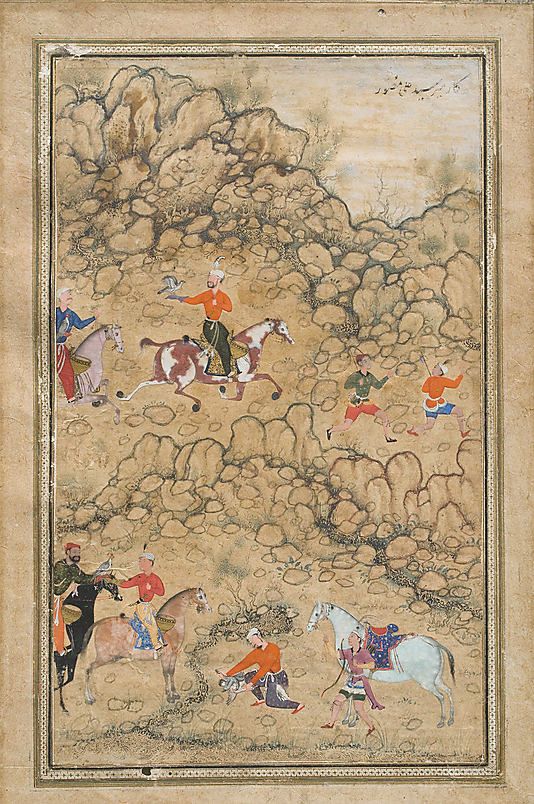 کار میر سید علی مصور